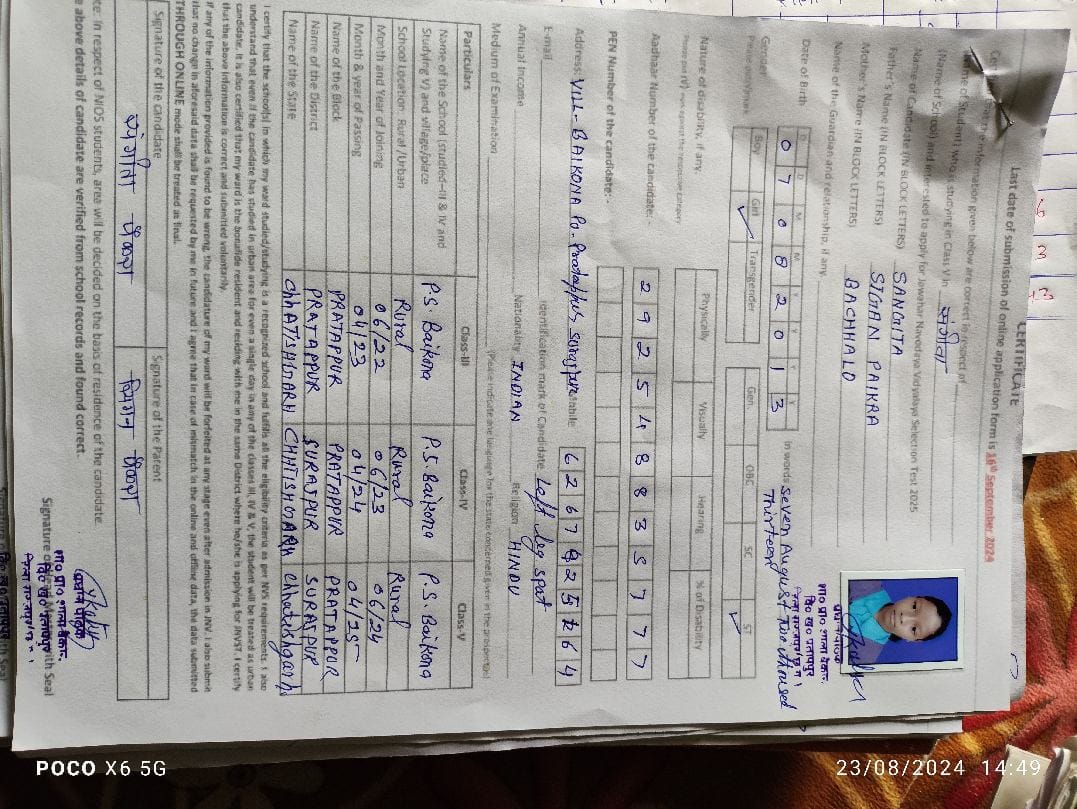 CERTIFICATE
Last date of submission of online application form is 16th September 2024
the information given below are correct in respect of
Name of Student) who is studying in Class V in
(Name of School) and interested to apply for Jawahar Navodaya Vidyalaya Selection Test 2025
Name of Candidate (IN BLOCK LETTERS) SANGITA
Father's Name (IN BLOCK LETTERS) SIGAN PAIKRA
Mother's Name (IN BLOCK LETTERS) BACHHALO
Name of the Guardian and relationship, if any
Date of Birth D D M M Y Y Y Y
0 7 0 8 2 0 1 3 in words Seven August Two thoused
Thirteen
Gender Boy Girl ✓ Transgender Gen. OBC SC ST ✓
Nature of disability, if any. Physically Visually Hearing % of Disability
Aadhaar Number of the candidate: 2 9 2 5 4 8 8 3 5 7 7 7
PEN Number of the candidate:
Address: VILL- BAIKONA Po- Pratappur, Surajpur Mobile 6 2 6 7 9 2 5 2 6 4
E-mail Identification mark of Candidate Left leg spat
Annual Income Nationality INDIAN Religion HINDU
Medium of Examination (Please indicate one language for the state concerned given in the prospectus)
Particulars Class-III Class-IV Class-V
Name of the School (studied-III & IV and Studying V) and village/place P.S. Baikona P.S. Baikona P.S. Baikona
School Location: Rural /Urban Rural Rural Rural
Month and Year of Joining 06/22 06/23 06/24
Month & year of Passing 04/23 04/24 04/25
Name of the Block PRATAPPUR PRATAPPUR PRATAPPUR
Name of the District PRATAPPUR SURAJPUR SURAJPUR
Name of the State ChhATISHGARH CHHTISHGARH Chhatishgarh
I certify that the school(s) in which my ward studied/studying is a recognized school and fulfils all the eligibility criteria as per NVS requirements. I also
understand that even if the candidate has studied in urban area for even a single day in any of the classes III, IV & V, the student will be treated as urban
candidate. It is also certified that my ward is the bonafide resident and residing with me in the same District where he/she is applying for JNVST. I certify
that the above information is correct and submitted voluntarily.
If any of the information provided is found to be wrong, the candidature of my ward will be forfeited at any stage even after admission in JNV. I also submit
that no change in aforesaid data shall be requested by me in future and I agree that in case of mismatch in the online and offline data, the data submitted
THROUGH ONLINE mode shall be treated as final.
Signature of the candidate Signature of the Parent
संगीता पैकरा
सिगन पैकरा
ce: In respect of NIOS students, area will be decided on the basis of residence of the candidate.
e above details of candidate are verified from school records and found correct.
प्रधान पाठक
शा० प्रा० शाला बैकोना
वि० ख० प्रतापपुर
Signature of Head Master with Seal
POCO X6 5G
23/08/2024 14:49